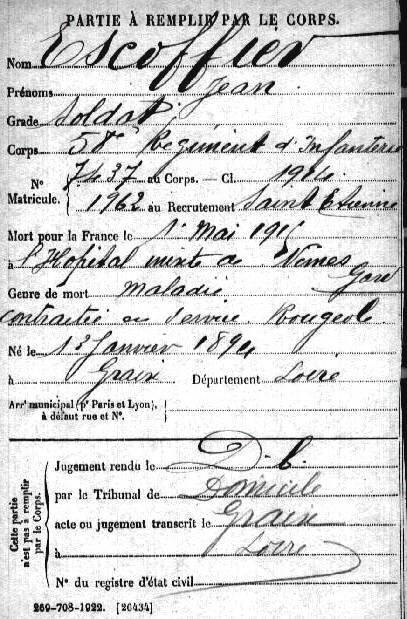 PARTIE À REMPLIR PAR LE CORPS.
Nom Escoffier
Prénoms Jean
Grade Soldat
Corps 58e Régiment d'Infanterie
N° Matricule. 7437 au Corps. — Cl. 1914
1962 au Recrutement Saint Etienne
Mort pour la France le 1er Mai 191
à l'Hopital mixte de Nimes
Gard
Genre de mort maladie
contractée en service Rougeole
Né le Janvier 1894
à Graix Département Loire
Arrt municipal (pr Paris et Lyon), à défaut rue et N°.
Cette partie n'est pas à remplir par le Corps.
Jugement rendu le D. c.
par le Tribunal de Domicile
acte ou jugement transcrit le Graix
à Loire
N° du registre d'état civil
269-708-1922. [26434]